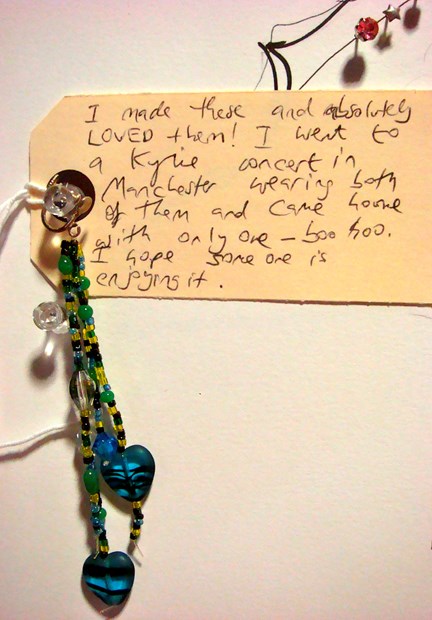 I made these and absolutely
LOVED them! I went to
a Kylie concert in
Manchester wearing both
of them and came home
with only one – boo hoo.
I hope some one is
enjoying it.